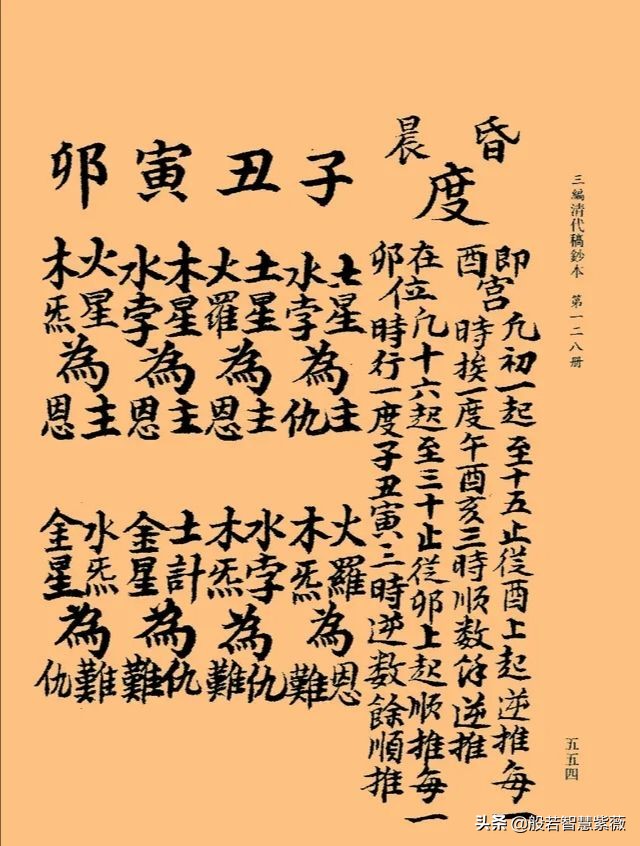 三編清代稿鈔本 第一二八册
昏晨度
即酉宮凡初一起至十五止從酉上起逆推每一
時挨一度午酉亥三時順数餘逆推
在卯位凡十六起至三十止從卯上起順推每一
時行一度子丑寅三時逆数餘順推
子
土星為主
水孛為仇
火羅為恩
木炁為難
丑
土星為主
火羅為恩
水孛為仇
木炁為難
寅
木星為主
水孛為恩
土計為仇
金星為難
卯
火星為主
木炁為恩
水炁為難
金星為仇
五五四
头条 @般若智慧紫薇